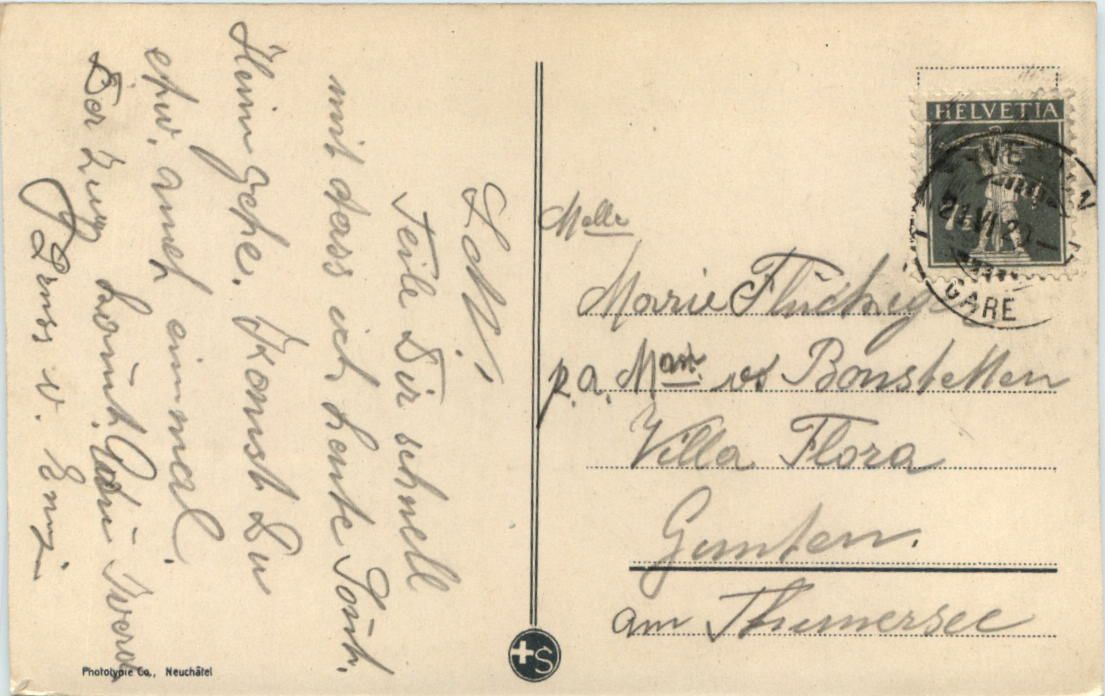 L. M!,
Teile Dir schnell
mit dass ich heute Sont.
Heim gehe. Konst Du
etw. auch einmal.
Der Zug kommt
Gruss v. Emy
Melle
Marie Flückiger
p.a. Mad. v. Bonstetten
Villa Flora
Gunten.
am Thunersee
HELVETIA
7½
YVE
21.VI.2
GARE
S
Phototypie Co., Neuchâtel